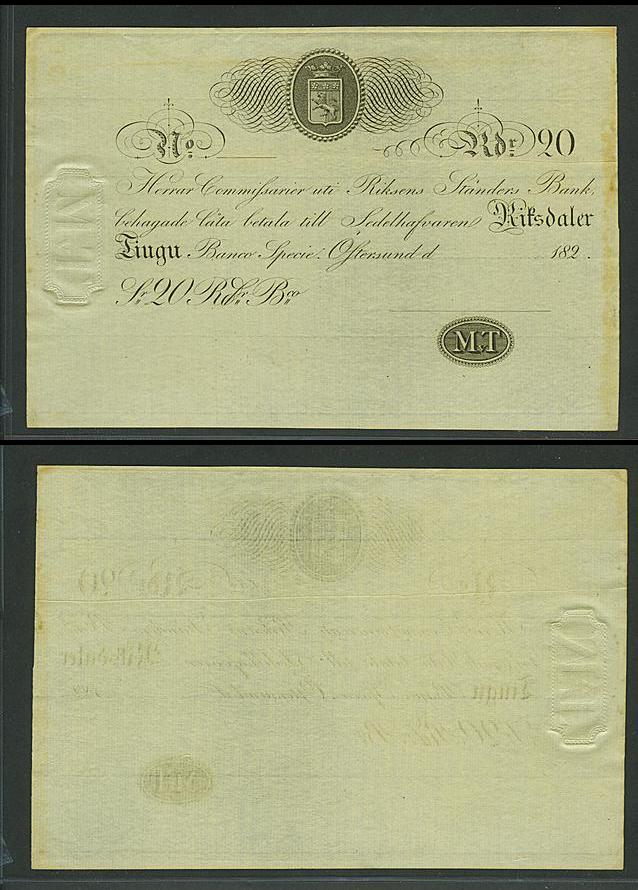 No. Rdr. 20
Herrar Commissarier uti Riksens Ständers Bank,
behagade låta betala till Sedelhafvaren Riksdaler
Tiugu Banco Specie. Östersund d 182 .
Sr. 20 Rdr. Bco
M.T